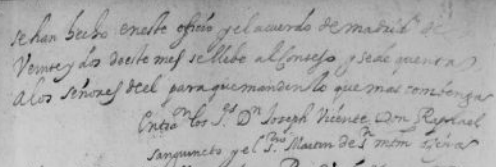 se han hecho en este oficio y el acuerdo de madrid de
Veinte y dos deeste mes se llebe al Consejo y sede quenta
a los señores deel para que manden lo que mas combenga
Entraron los Sres Dn Joseph Vicente Don Raphael
sanguineto y el Pmo Martin de Sn